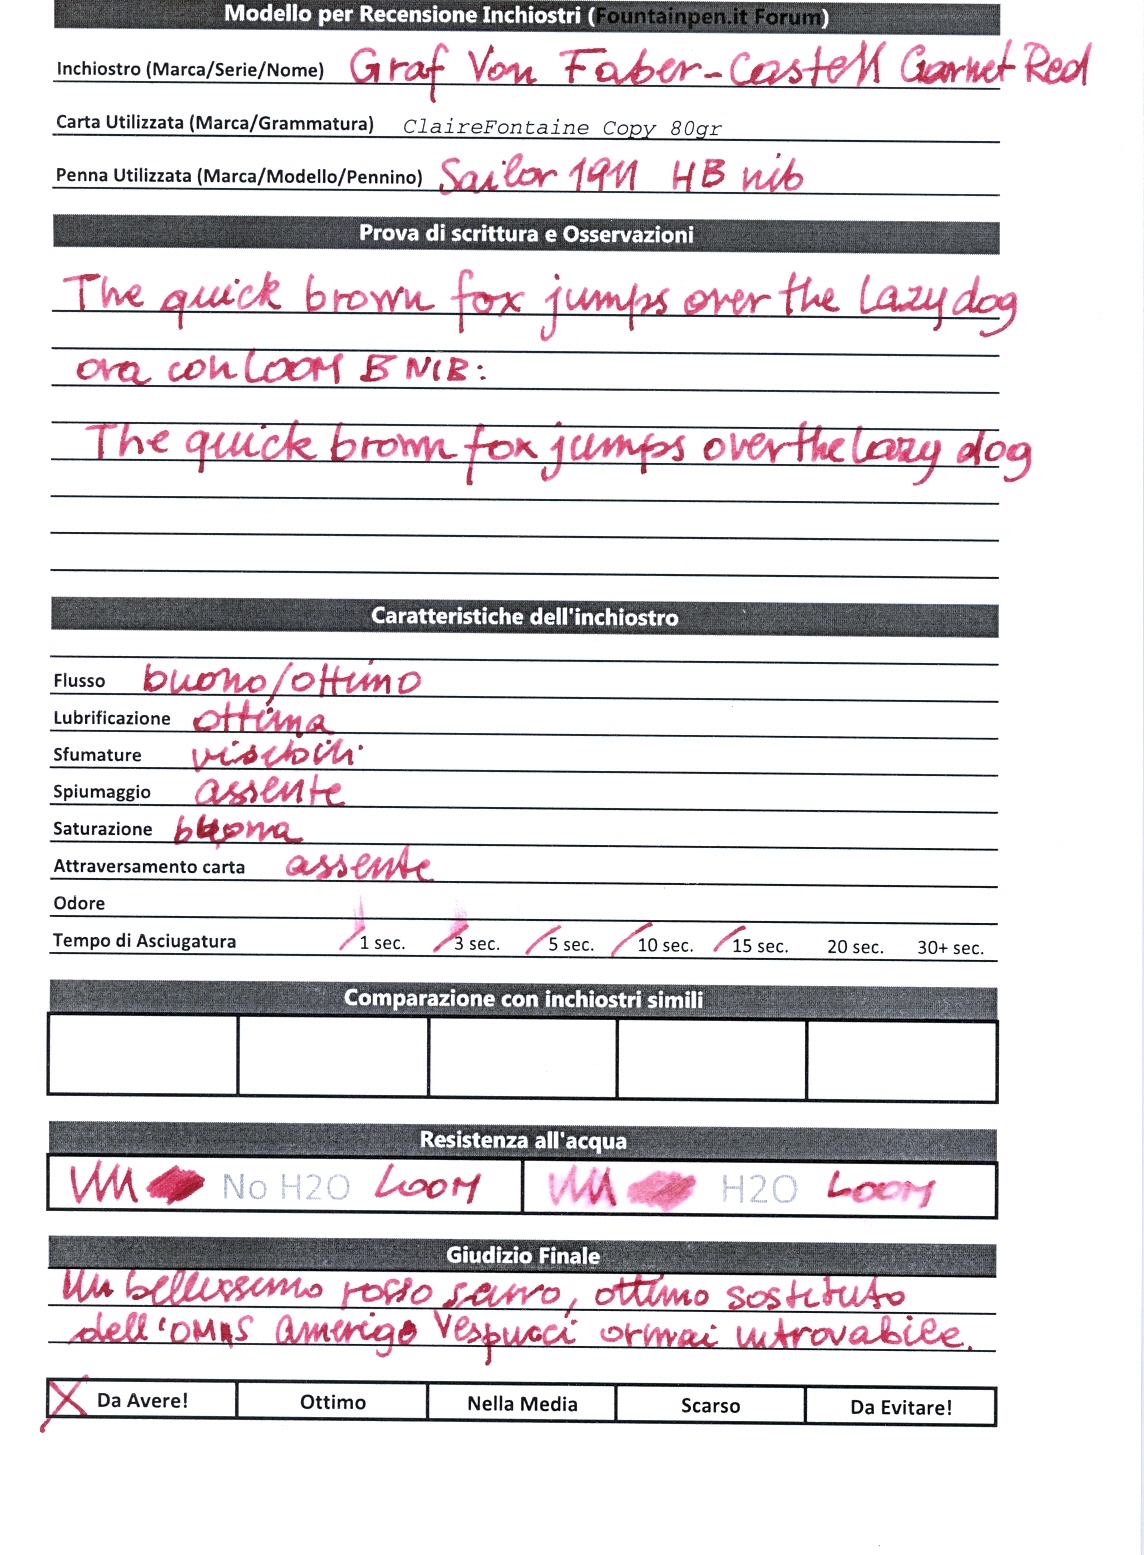 Modello per Recensione Inchiostri (Fountainpen.it Forum)
Inchiostro (Marca/Serie/Nome) Graf Von Faber-Castell Garnet Red
Carta Utilizzata (Marca/Grammatura) ClaireFontaine Copy 80gr
Penna Utilizzata (Marca/Modello/Pennino) Sailor 1911 HB nib
Prova di scrittura e Osservazioni
The quick brown fox jumps over the lazy dog
ora con LOOM B NIB:
The quick brown fox jumps over the lazy dog
Caratteristiche dell'inchiostro
Flusso buono/ottimo
Lubrificazione ottima
Sfumature visibili
Spiumaggio assente
Saturazione buona
Attraversamento carta assente
Odore
Tempo di Asciugatura 1 sec. 3 sec. 5 sec. 10 sec. 15 sec. 20 sec. 30+ sec.
Comparazione con inchiostri simili
Resistenza all'acqua
No H2O LOOM H2O LOOM
Giudizio Finale
Un bellissimo rosso scuro, ottimo sostituto
dell'OMAS Amerigo Vespucci ormai introvabile.
Da Avere! Ottimo Nella Media Scarso Da Evitare!